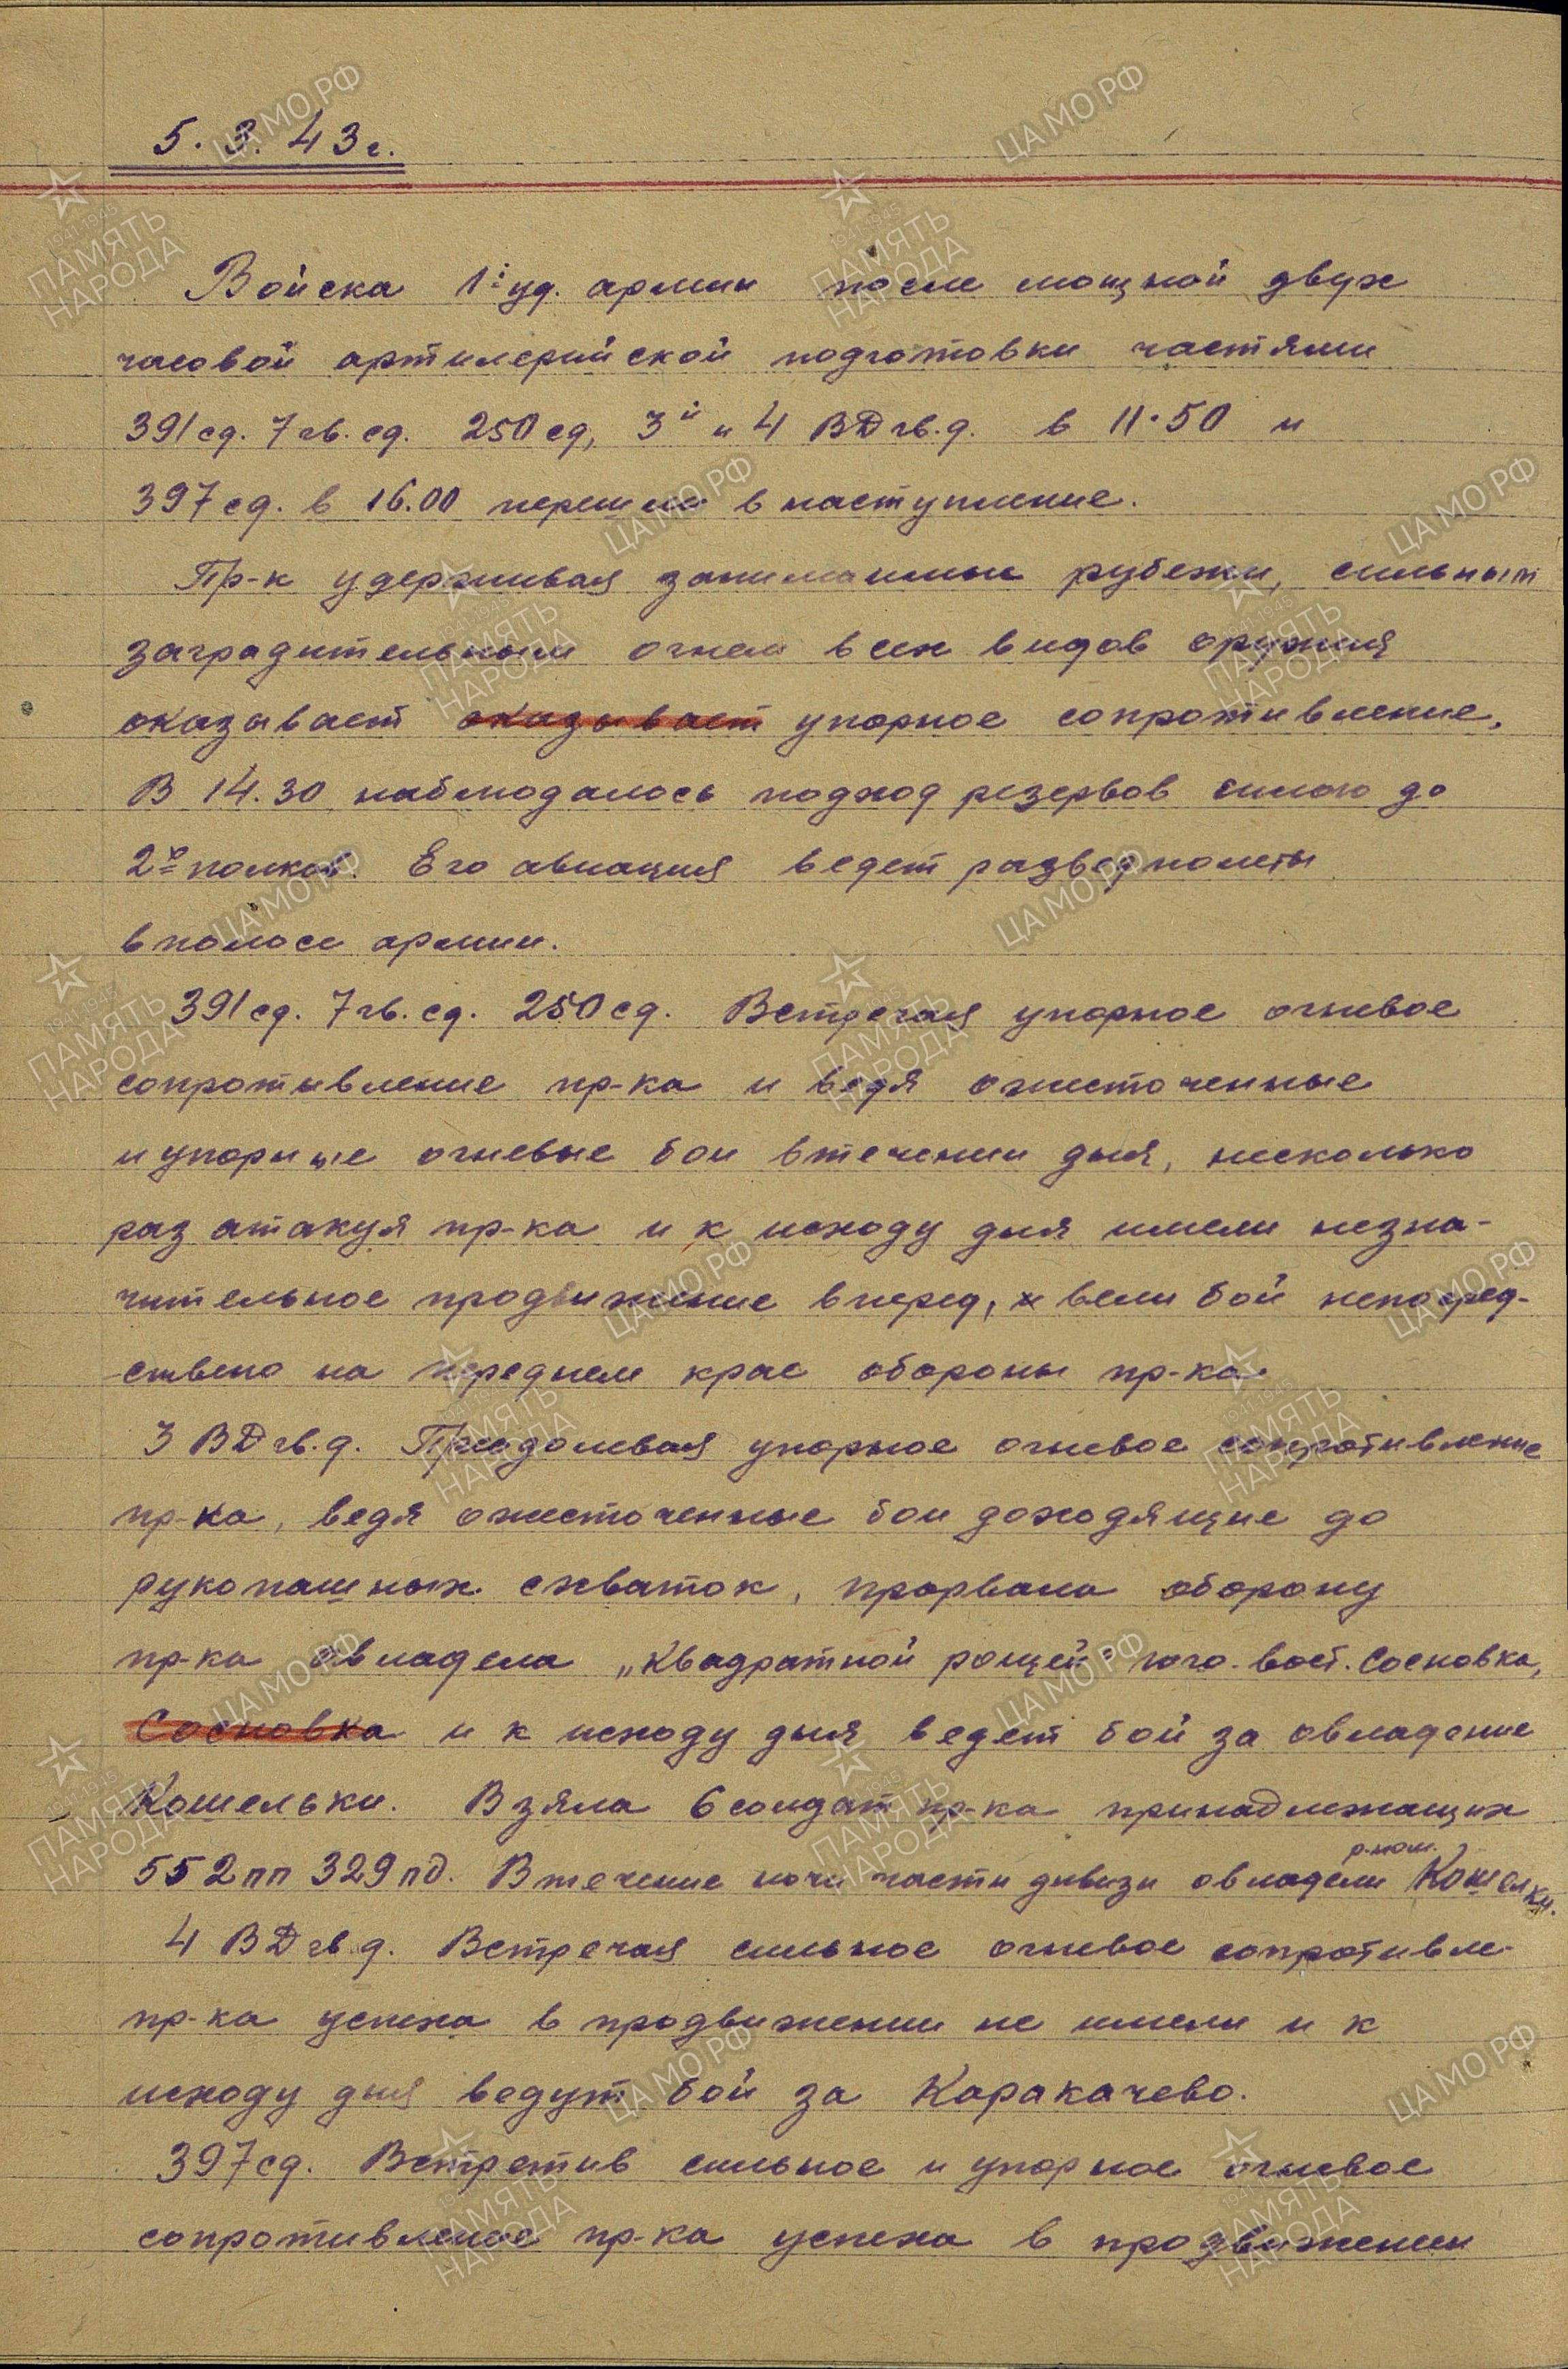 5. 3. 43г.
Войска 1й уд. армии после мощной двух
часовой артилерийской подготовки частями
391 сд. 7 гв. сд. 250 сд, 3й и 4 ВД гв. д. в 11.50 и
397 сд. в 16.00 перешли в наступление.
Пр-к удерживая занимаимые рубежи, сильным
заградительным огнем всех видов оружия
оказывает оказывает упорное сопротивление.
В 14.30 наблюдалось подход резервов силою до
2х полков. Его авиация ведет разведполеты
в полосе армии.
391 сд. 7 гв. сд. 250 сд. Встречая упорное огневое
сопротивление пр-ка и ведя ожисточенные
и упорные огневые бои втечении дня, несколько
раз атакуя пр-ка и к исходу дня имели незна-
чительное продвижение вперед, и вели бой непосред-
ствено на переднем крае обороны пр-ка.
3 ВД гв. д. Преодолевая упорное огневое сопротивление
пр-ка, ведя ожисточенные бои доходящие до
рукопашных схваток, прорвала оборону
пр-ка овладела „Квадратной рощей" юго-вост. Сосновка,
Сосновка и к исходу дня ведет бой за овладение
Кошельки. Взяла 6 солдат пр-ка принадлежащих
р-ном.
552 пп 329 пд. Втечение ночи части дивизи овладели Кошелки.
4 ВД гв. д. Встречая сильное огневое сопротивле-
пр-ка успеха в продвижении не имели и к
исходу дня ведут бой за Каракачево.
397 сд. Встретив сильное и упорное огневое
сопротивление пр-ка успеха в продвижении
ЦАМО.РФ
1941-1945
ПАМЯТЬ
НАРОДА